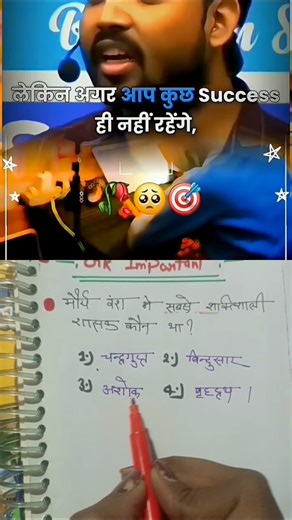 लेकिन अगर आप कुछ Success
ही नहीं रहेंगे,
Important
मौर्य वंश मे सबसे शक्तिशाली
शासक कौन था?
1.) चन्द्रगुप्त 2.) बिन्दुसार
3.) अशोक 4.) बृहद्रथ ।